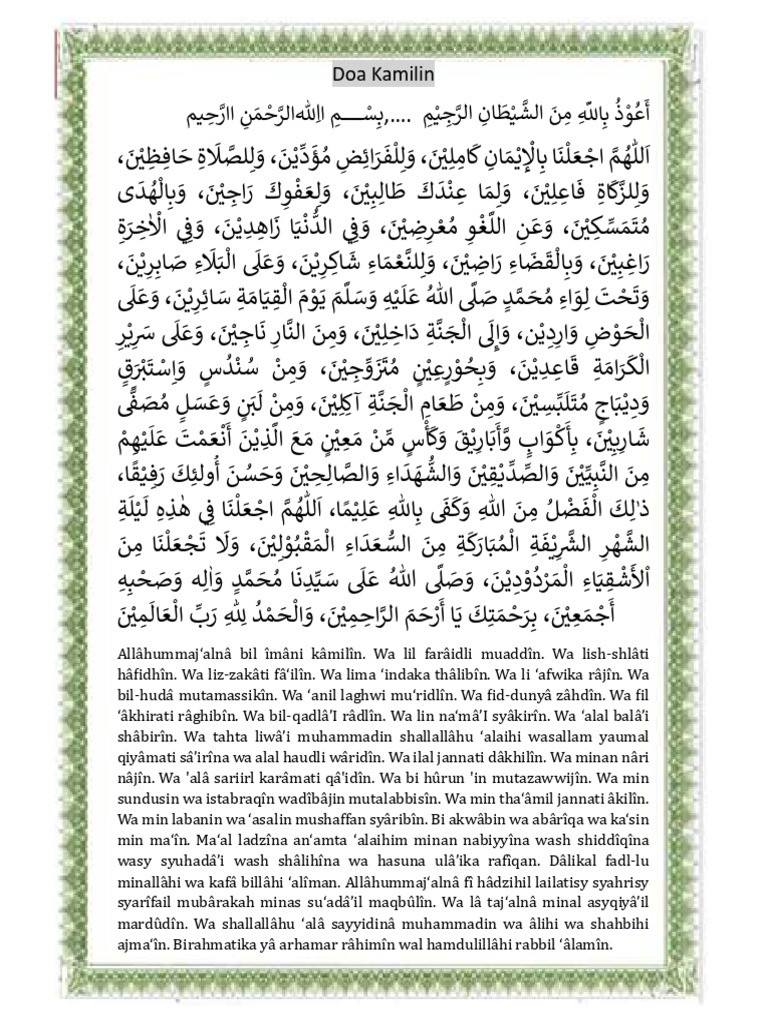 Doa Kamilin
أَعُوْذُ بِاللَّهِ مِنَ الشَّيْطَانِ الرَّجِيْمِ ....,بِسْــــمِ اِاللهِ الرَّحْمَنِ اارَّحِيم
اَللّٰهُمَّ اجْعَلْنَا بِالْإِيْمَانِ كَامِلِيْنَ، وَلِلْفَرَائِضِ مُؤَدِّيْنَ، وَلِلصَّلَاةِ حَافِظِيْنَ،
وَلِلزَّكَاةِ فَاعِلِيْنَ، وَلِمَا عِنْدَكَ طَالِبِيْنَ، وَلِعَفْوِكَ رَاجِيْنَ، وَبِالْهُدَى
مُتَمَسِّكِيْنَ، وَعَنِ اللَّغْوِ مُعْرِضِيْنَ، وَفِي الدُّنْيَا زَاهِدِيْنَ، وَفِي الْاٰخِرَةِ
رَاغِبِيْنَ، وَبِالْقَضَاءِ رَاضِيْنَ، وَلِلنَّعْمَاءِ شَاكِرِيْنَ، وَعَلَى الْبَلَاءِ صَابِرِيْنَ،
وَتَحْتَ لِوَاءِ مُحَمَّدٍ صَلَّى اللهُ عَلَيْهِ وَسَلَّمَ يَوْمَ الْقِيَامَةِ سَائِرِيْنَ، وَعَلَى
الْحَوْضِ وَارِدِيْن، وَإِلَى الْجَنَّةِ دَاخِلِيْنَ، وَمِنَ النَّارِ نَاجِيْنَ، وَعَلَى سَرِيْرِ
الْكَرَامَةِ قَاعِدِيْنَ، وَبِحُوْرِعِيْنٍ مُتَزَوِّجِيْنَ، وَمِنْ سُنْدُسٍ وَاِسْتَبْرَقٍ
وَدِيْبَاجٍ مُتَلَبِّسِيْنَ، وَمِنْ طَعَامِ الْجَنَّةِ آكِلِيْنَ، وَمِنْ لَبَنٍ وَعَسَلٍ مُصَفًّى
شَارِبِيْنَ، بِأَكْوَابٍ وَّأَبَارِيْقَ وَكَأْسٍ مِّنْ مَعِيْنٍ مَعَ الَّذِيْنَ أَنْعَمْتَ عَلَيْهِمْ
مِنَ النَّبِيِّيْنَ وَالصِّدِّيْقِيْنَ وَالشُّهَدَاءِ وَالصَّالِحِيْنَ وَحَسُنَ أُولئِكَ رَفِيْقًا،
ذٰلِكَ الْفَضْلُ مِنَ اللهِ وَكَفَى بِاللهِ عَلِيْمًا، اَللّٰهُمَّ اجْعَلْنَا فِي هٰذِهِ لَيْلَةِ
الشَّهْرِ الشَّرِيْفَةِ الْمُبَارَكَةِ مِنَ السُّعَدَاءِ الْمَقْبُوْلِيْنَ، وَلَا تَجْعَلْنَا مِنَ
اْلأَشْقِيَاءِ الْمَرْدُوْدِيْنَ، وَصَلَّى اللهُ عَلَى سَيِّدِنَا مُحَمَّدٍ وَاٰلِه وَصَحْبِهِ
أَجْمَعِيْنَ، بِرَحْمَتِكَ يَا أَرْحَمَ الرَّاحِمِيْنَ، وَالْحَمْدُ لِلهِ رَبِّ الْعَالَمِيْنَ
Allâhummaj‘alnâ bil îmâni kâmilîn. Wa lil farâidli muaddîn. Wa lish-shlâti
hâfidhîn. Wa liz-zakâti fâ‘ilîn. Wa lima ‘indaka thâlibîn. Wa li ‘afwika râjîn. Wa
bil-hudâ mutamassikîn. Wa ‘anil laghwi mu‘ridlîn. Wa fid-dunyâ zâhdîn. Wa fil
‘âkhirati râghibîn. Wa bil-qadlâ’I râdlîn. Wa lin na‘mâ’I syâkirîn. Wa ‘alal balâ’i
shâbirîn. Wa tahta liwâ’i muhammadin shallallâhu ‘alaihi wasallam yaumal
qiyâmati sâ’irîna wa alal haudli wâridîn. Wa ilal jannati dâkhilîn. Wa minan nâri
nâjîn. Wa 'alâ sariirl karâmati qâ'idîn. Wa bi hûrun 'in mutazawwijîn. Wa min
sundusin wa istabraqîn wadîbâjin mutalabbisîn. Wa min tha‘âmil jannati âkilîn.
Wa min labanin wa ‘asalin mushaffan syâribîn. Bi akwâbin wa abârîqa wa ka’sin
min ma‘în. Ma‘al ladzîna an‘amta ‘alaihim minan nabiyyîna wash shiddîqîna
wasy syuhadâ’i wash shâlihîna wa hasuna ulâ’ika rafîqan. Dâlikal fadl-lu
minallâhi wa kafâ billâhi ‘alîman. Allâhummaj‘alnâ fî hâdzihil lailatisy syahrisy
syarîfail mubârakah minas su‘adâ’il maqbûlîn. Wa lâ taj‘alnâ minal asyqiyâ’il
mardûdîn. Wa shallallâhu ‘alâ sayyidinâ muhammadin wa âlihi wa shahbihi
ajma‘în. Birahmatika yâ arhamar râhimîn wal hamdulillâhi rabbil ‘âlamîn.